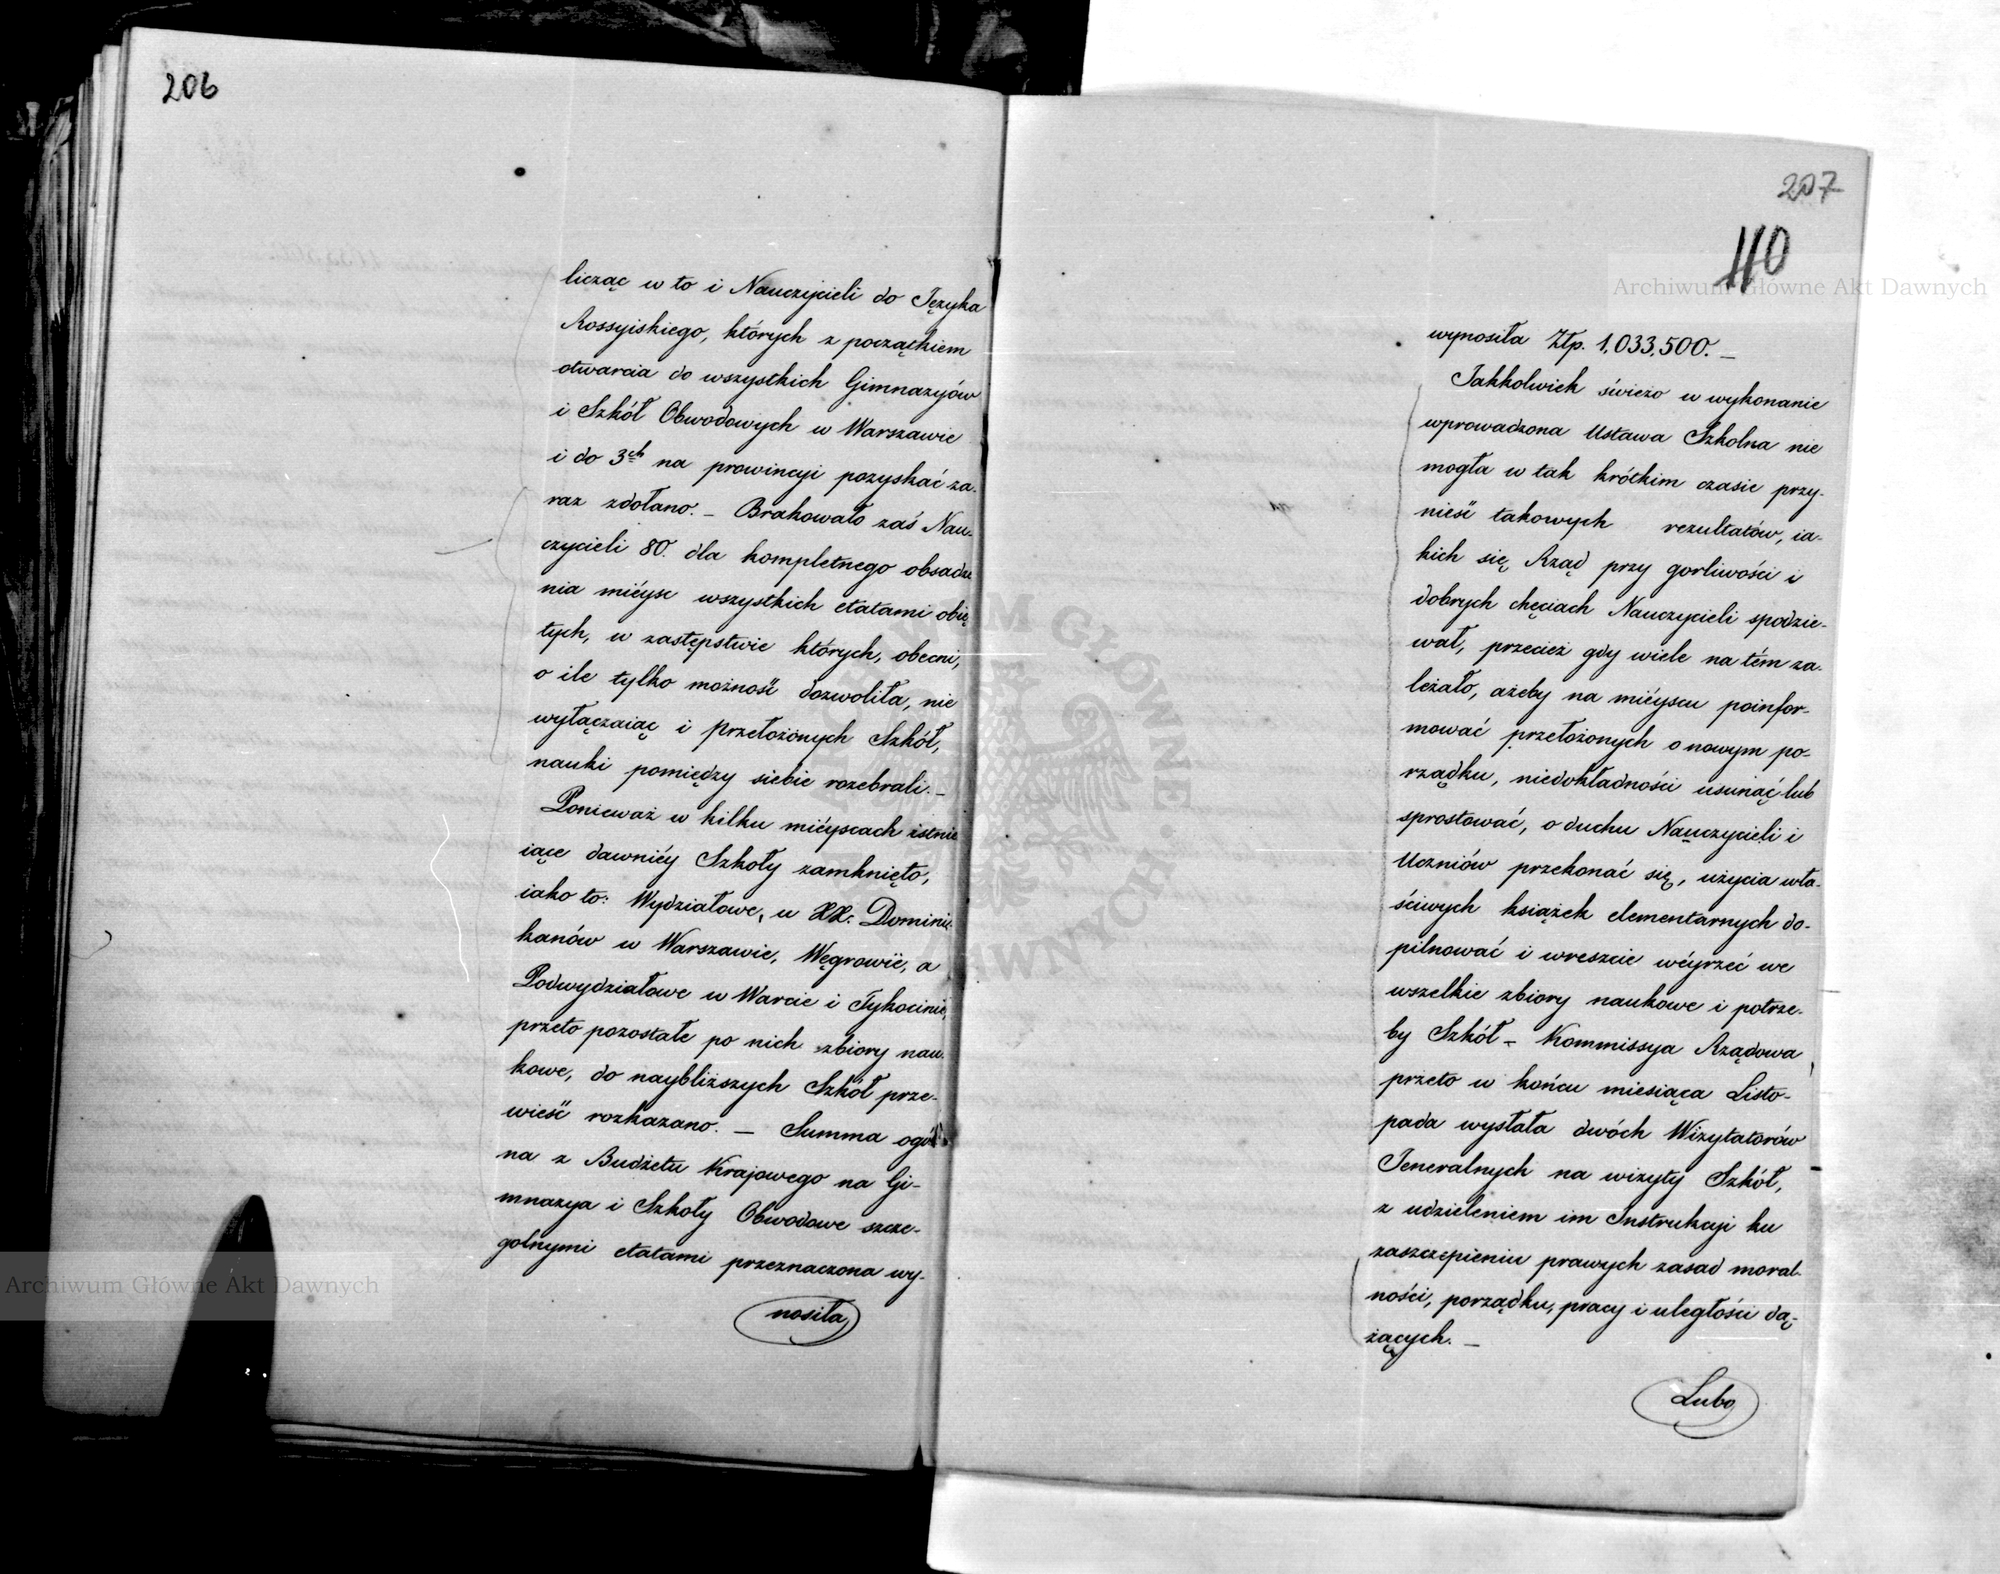 206
licząc w to i Nauczycieli do Języka
Rossyiskiego, których z początkiem
otwarcia do wszystkich Gimnazyów
i Szkół Obwodowych w Warszawie
i do 3ch na prowincyi pozyskać za-
raz zdołano. – Brakowało zaś Nau-
czycieli 80. dla kompletnego obsadze
nia mićysc wszystkich etatami obię
tych, w zastępstwie których, obecni,
o ile tylko możność dozwoliła, nie
wyłączaiąc i Przełożonych Szkół,
nauki pomiędzy siebie rozebrali. –
Ponieważ w kilku mićyscach istnie
iące dawnićy Szkoły zamknięto,
iako to: Wydziałowe, u XX. Domini-
kanów w Warszawie, Węgrowie, a
Podwydziałowe w Warcie i Tykocinie,
przeto pozostałe po nich zbiory nau-
kowe, do naybliższych Szkół prze-
wieść rozkazano. – Summa ogól
na z Budżetu Krajowego na Gi-
mnazya i Szkoły Obwodowe szcze-
gólnymi etatami przeznaczona wy-
nosiła
207
110
wynosiła Złp. 1,033,500. –
Jakkolwiek świeżo w wykonanie
wprowadzona Ustawa Szkolna nie
mogła w tak krótkim czasie przy-
nieść takowych rezultatów, ia-
kich się Rząd przy gorliwości i
dobrych chęciach Nauczycieli spodzie-
wał, przecież gdy wiele na tém za-
leżało, ażeby na mićyscu poinfor-
mować przełożonych o nowym po-
rządku, niedokładności usunąć lub
sprostować, o duchu Nauczycieli i
Uczniów przekonać się, użycia wła-
ściwych książek elementarnych do-
pilnować i wreszcie wéyrzeć we
wszelkie zbiory naukowe i potrze-
by Szkół – Kommissya Rządowa
przeto w końcu miesiąca Listo-
pada wysłała dwóch Wizytatorów
Jeneralnych na wizyty Szkół,
z udzieleniem im Instrukcyi ku
zaszczepieniu prawych zasad moral-
ności, porządku, pracy i uległości dą-
żących. –
Lubo
Archiwum Główne Akt Dawnych
Archiwum Główne Akt Dawnych